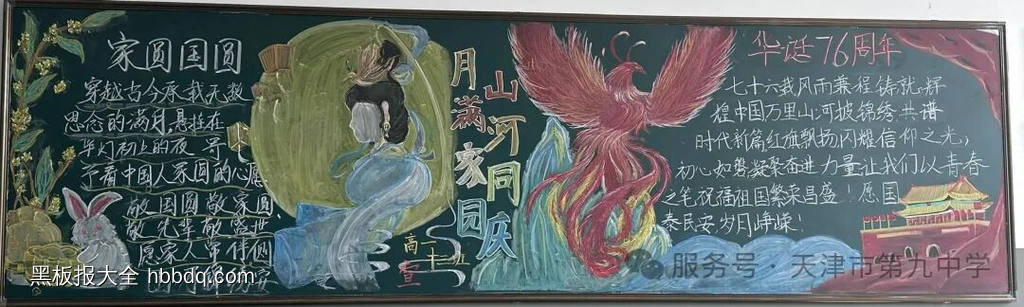 家圆国圆
穿越古今承载无数
思念的满月悬挂在
华灯初上的夜
看中国人家圆的心愿
敬国圆敬家圆
敬先辈敬盛世
愿家人常伴侧
月满家园
山河同庆
高一
十五
宣
华诞76周年
七十六载风雨兼程铸就辉
煌中国万里山河披锦绣共谱
时代新篇红旗飘扬闪耀信仰之光,
初心如磐凝聚奋进力量让我们以青春
之笔祝福祖国繁荣昌盛!愿国
泰民安岁月峥嵘!
黑板报大全 hbbdq.com
服务号·天津市第九中学